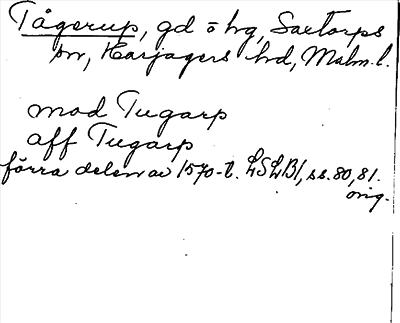 Tågerup, gd o hg, Saxtorps
sn, Harjagers hd, Malm.l.
mod Tugarp
aff Tugarp
förra delen av 1570-t. LSLB1, ss.80,81.
orig.